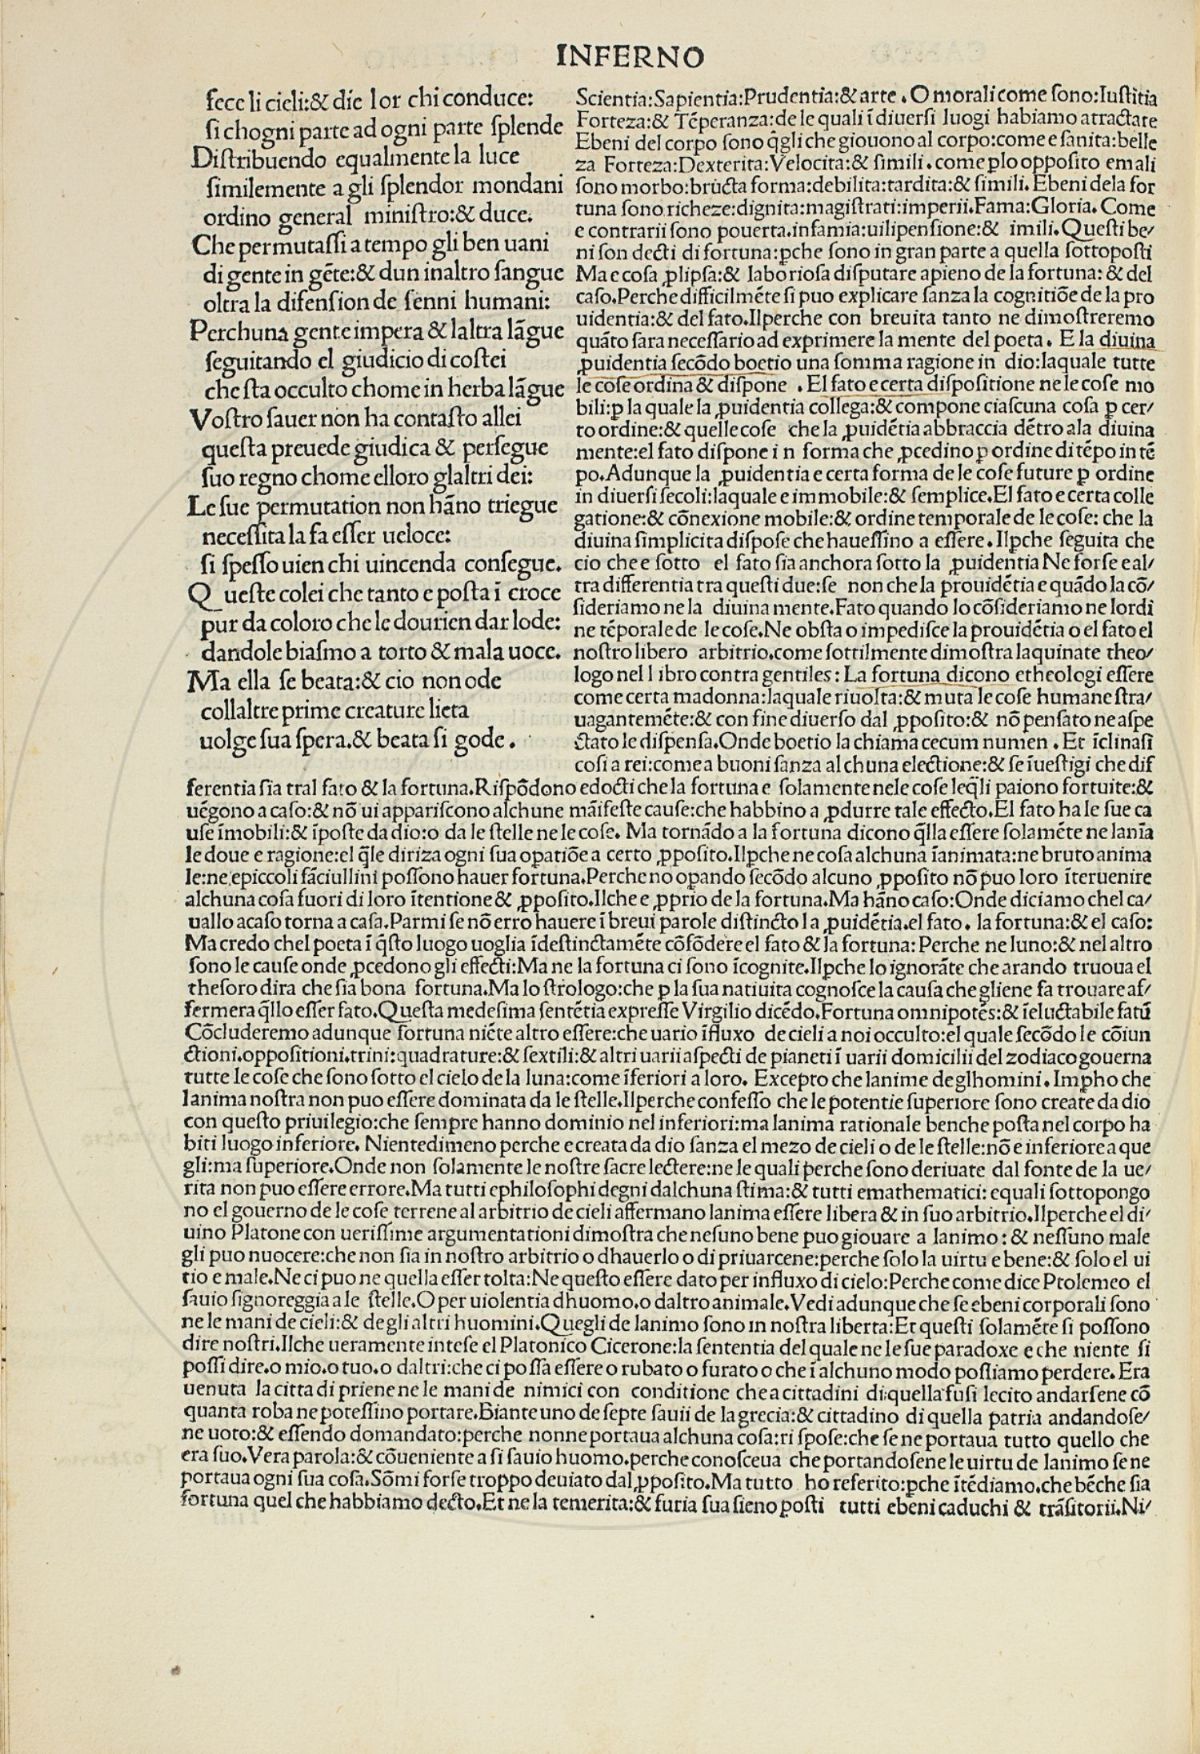 INFERNO
fece li cieli:& die lor chi conduce:
si chogni parte ad ogni parte splende
Distribuendo equalmente la luce
similemente a gli splendor mondani
ordino general ministro:& duce.
Che permutassi a tempo gli ben uani
di gente in gẽte:& dun inaltro sangue
oltra la difension de senni humani:
Perchuna gente impera & laltra lãgue
seguitando el giudicio di costei
che sta occulto chome in herba lãgue
Vostro sauer non ha contasto allei
questa preuede giudica & persegue
suo regno chome elloro glaltri dei:
Le sue permutation non hãno triegue
necessita la fa esser ueloce:
si spesso uien chi uincenda consegue.
Queste colei che tanto e posta ĩ croce
pur da coloro che le dourien dar lode:
dandole biasmo a torto & mala uoce.
Ma ella se beata:& cio non ode
collaltre prime creature lieta
uolge sua spera.& beata si gode.
Scientia:Sapientia:Prudentia:& arte.O morali come sono:Iustitia
Forteza:& Tẽperanza:de le quali ĩ diuersi luogi habiamo atractate
Ebeni del corpo sono q̃gli che giouono al corpo:come e sanita:belle
za Forteza:Dexterita:Velocita:& simili.come ꝑlo opposito emali
sono morbo:bructa forma:debilita:tardita:& simili.Ebeni dela for
tuna sono richeze:dignita:magistrati:imperii.Fama:Gloria.Come
e contrarii sono pouerta.infamia:uilipensione:& imili.Questi be/
ni son decti di fortuna:ꝑche sono in gran parte a quella sottoposti
Ma e cosa ꝓlipsa:& laboriosa disputare apieno de la fortuna:& del
caso.Perche difficilmẽte si puo explicare sanza la cognitiõe de la pro
uidentia:& del fato.Ilperche con breuita tanto ne dimostreremo
quãto sara necessario ad exprimere la mente del poeta. E la diuina
ꝓuidentia secõdo boetio una somma ragione in dio:laquale tutte
le cose ordina & dispone .El fato e certa dispositione ne le cose mo
bili:ꝑ la quale la ꝓuidentia collega:& compone ciascuna cosa ꝑ cer/
to ordine:& quelle cose che la ꝓuidẽtia abbraccia dẽtro ala diuina
mente:el fato dispone i n forma che ꝓcedino ꝑ ordine di tẽpo in tẽ
po.Adunque la ꝓuidentia e certa forma de le cose future ꝑ ordine
in diuersi secoli:laquale e immobile:& semplice.El fato e certa colle
gatione:& cõnexione mobile:& ordine temporale de le cose: che la
diuina simplicita dispose che hauessino a essere.Ilꝑche seguita che
cio che e sotto el fato sia anchora sotto la ꝓuidentia Ne forse e al/
tra differentia tra questi due:se non che la prouidẽtia e quãdo la cõ/
sideriamo ne la diuina mente.Fato quando lo cõsideriamo ne lordi
ne tẽporale de le cose.Ne obsta o impedisce la prouidẽtia o el fato el
nostro libero arbitrio.come sottilmente dimostra laquinate theo/
logo nel l ibro contra gentiles: La fortuna dicono etheologi essere
come certa madonna:laquale riuolta:& muta le cose humane stra/
uagantemẽte:& con fine diuerso dal ꝓposito:& nõ pensato ne aspe
ctato le dispensa.Onde boetio la chiama cecum numen . Et ĩclinasi
cosi a rei:come a buoni sanza alchuna electione:& se ĩuestigi che dif
ferentia sia tral fato & la fortuna.Rispõdono edocti che la fortuna e solamente nele cose leq̃li paiono fortuite:&
uẽgono a caso:& nõ ui appariscono alchune mãifeste cause:che habbino a ꝓdurre tale effecto.El fato ha le sue ca
use ĩmobili:& ĩposte da dio:o da le stelle ne le cose. Ma tornãdo a la fortuna dicono q̃lla essere solamẽte ne lanĩa
le doue e ragione:el q̃le diriza ogni sua opatiõe a certo ꝓposito.Ilꝑche ne cosa alchuna ĩanimata:ne bruto anima
le:ne epiccoli fãciullini possono hauer fortuna.Perche no opando secõdo alcuno ꝓposito nõ puo loro ĩteruenire
alchuna cosa fuori di loro ĩtentione & ꝓposito.Ilche e ꝓprio de la fortuna.Ma hãno caso:Onde diciamo chel ca/
uallo acaso torna a casa.Parmi se nõ erro hauere ĩ breui parole distincto la ꝓuidẽtia.el fato. la fortuna:& el caso:
Ma credo chel poeta ĩ q̃sto luogo uoglia ĩdestinctamẽte cõfõdere el fato & la fortuna: Perche ne luno:& nel altro
sono le cause onde ꝓcedono gli effecti:Ma ne la fortuna ci sono ĩcognite.Ilꝑche lo ignorãte che arando truoua el
thesoro dira che sia bona fortuna.Ma lo strologo:che ꝑ la sua natiuita cognosce la causa che gliene fa trouare af/
fermera q̃llo esser fato.Questa medesima sentẽtia expresse Virgilio dicẽdo.Fortuna omnipotẽs:& ĩeluctabile fatũ
Cõcluderemo adunque fortuna niẽte altro essere:che uario ĩfluxo de cieli a noi occulto:el quale secõdo le cõiun
ctioni.oppositioni.trini:quadrature:& sextili:& altri uarii aspecti de pianeti ĩ uarii domicilii del zodiaco gouerna
tutte le cose che sono sotto el cielo de la luna:come ĩferiori a loro. Excepto che lanime deglhomini.Impho che
lanima nostra non puo essere dominata da le stelle.Ilperche confesso che le potentie superiore sono create da dio
con questo priuilegio:che sempre hanno dominio nel inferiori:ma lanima rationale benche posta nel corpo ha
biti luogo inferiore. Nientedimeno perche e creata da dio sanza el mezo de cieli o de le stelle:nõ e inferiore a que
gli:ma superiore.Onde non solamente le nostre sacre lectere:ne le quali perche sono deriuate dal fonte de la ue/
rita non puo essere errore.Ma tutti ephilosophi degni dalchuna stima:& tutti emathematici: equali sottopongo
no el gouerno de le cose terrene al arbitrio de cieli affermano lanima essere libera & in suo arbitrio.Ilperche el di/
uino Platone con uerissime argumentationi dimostra che nesuno bene puo giouare a lanimo: & nessuno male
gli puo nuocere:che non sia in nostro arbitrio o dhauerlo o di priuarcene:perche solo la uirtu e bene:& solo el ui
tio e male.Ne ci puo ne quella esser tolta:Ne questo essere dato per influxo di cielo:Perche come dice Ptolemeo el
sauio signoreggia a le stelle.O per uiolentia dhuomo.o daltro animale.Vedi adunque che se ebeni corporali sono
ne le mani de cieli:& degli altri huomini.Quegli de lanimo sono in nostra liberta:Et questi solamẽte si possono
dire nostri.Ilche ueramente intese el Platonico Cicerone:la sententia del quale ne le sue paradoxe e che niente si
possi dire.o mio.o tuo.o daltri:che ci possa essere o rubato o furato o che ĩ alchuno modo possiamo perdere. Era
uenuta la citta di priene ne le mani de nimici con conditione che a cittadini di quella fusi lecito andarsene cõ
quanta roba ne potessino portare.Biante uno de septe sauii de la grecia:& cittadino di quella patria andandose/
ne uoto:& essendo domandato:perche nonne portaua alchuna cosa:ri spose:che se ne portaua tutto quello che
era suo.Vera parola:& cõueniente a si sauio huomo.perche conosceua che portandosene le uirtu de lanimo se ne
portaua ogni sua cosa.Sõmi forse troppo deuiato dal ꝓposito.Ma tutto ho referito:ꝑche ĩtẽdiamo.che bẽche sia
fortuna quel che habbiamo decto.Et ne la temerita:& furia sua sieno posti tutti ebeni caduchi & trãsitorii.Ni/